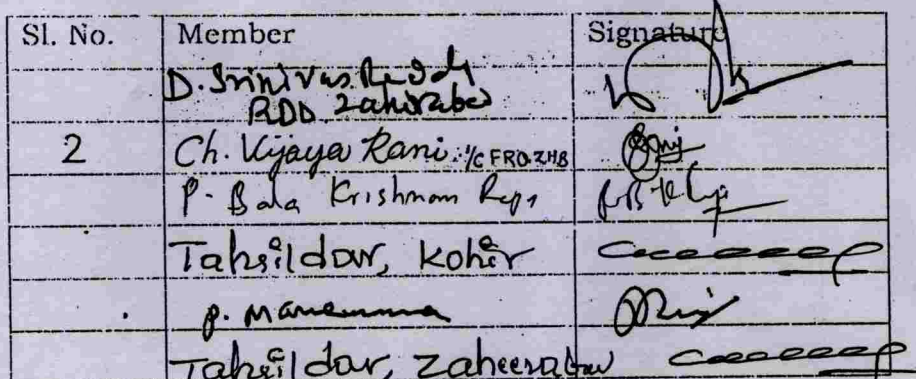 Sl. No. Member Signature
D. Srinivas Reddy
RDD Zahirabad
2 Ch. Vijaya Rani I/C FRO-ZHB
P. Bala Krishnam
Tahsildar, Kohir
P. Manemma
Tahsildar, Zaheerabad